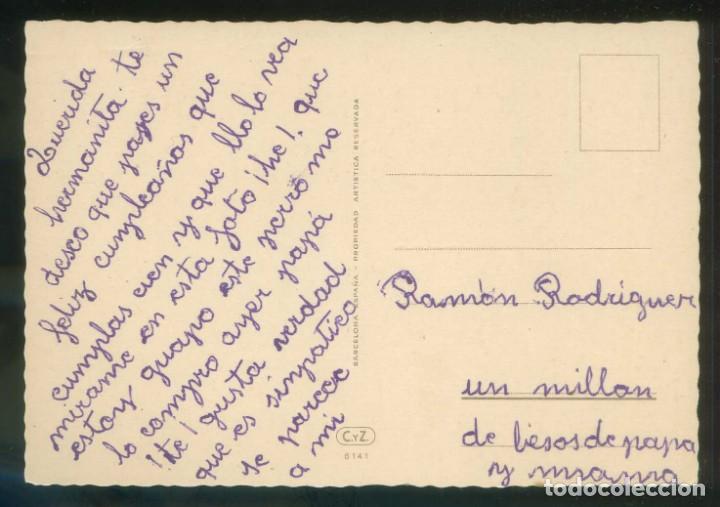 Querida
hermanita te
deseo que pases un
feliz cumpleaños que
cumplas cien y que llo lo vea
mirame en esta foto ¡he! que
estoy guapo este perro me
lo compro ayer papá
¡te! gusta verdad
que es sinpatico
se parece
a mi
BARCELONA-ESPAÑA - PROPIEDAD ARTISTICA RESERVADA
C.yZ.
6141
Ramón Rodriguer
un millon
de besos de papa
y mama
todocoleccion.net